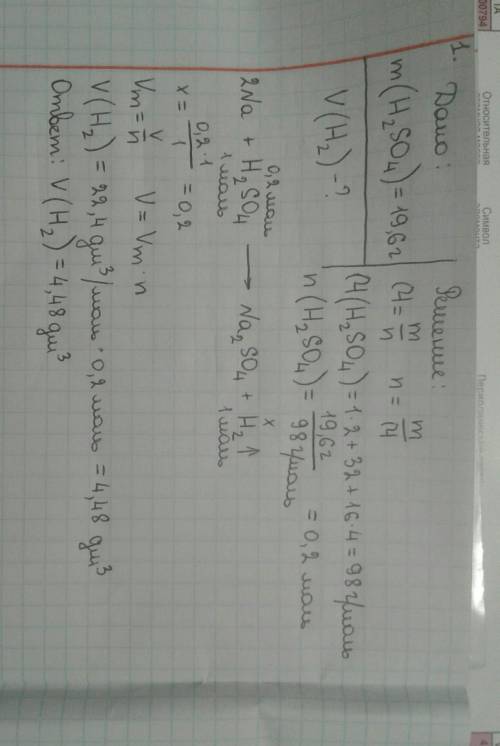 1. Дано:
m(H₂SO₄)=19,6г
V(H₂)-?
Решение:
M = m/n n = m/M
M(H₂SO₄)=1·2+32+16·4=98г/моль
n(H₂SO₄)= 19,6г/98г/моль = 0,2 моль
0,2моль x
2Na + H₂SO₄ → Na₂SO₄ + H₂↑
1моль 1моль
x = 0,2·1/1 = 0,2
Vm = V/n V = Vm·n
V(H₂) = 22,4 дм³/моль · 0,2 моль = 4,48 дм³
Ответ: V(H₂)=4,48дм³
Относительная
Символ